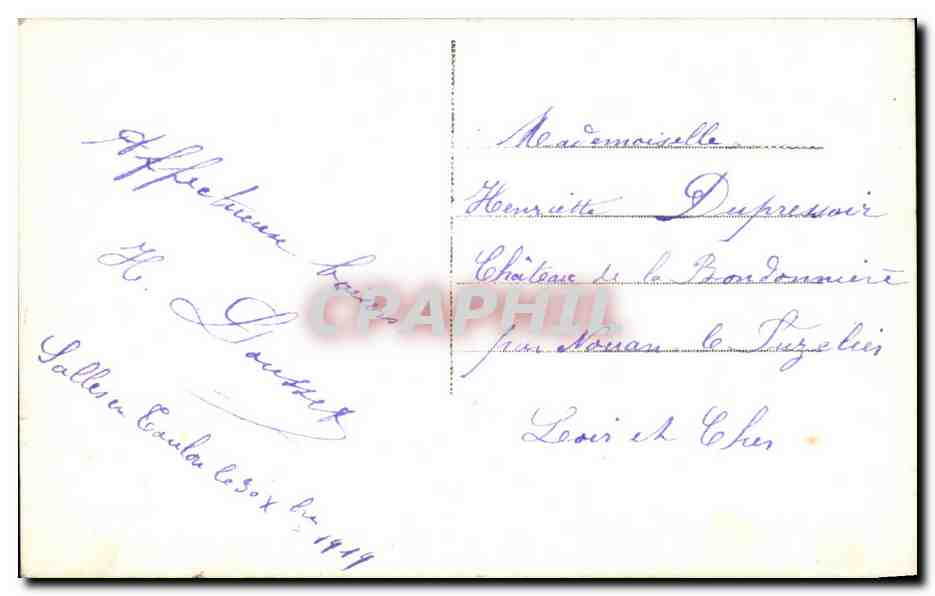 Affectueux baisers
H. Dousset
Salles en Toulon le 30 Xbre 1919
Mademoiselle
Henriette Dupressoir
Château de la Bondonnière
par Nouan le Fuzelier
Loir et Cher
CPAPHIL